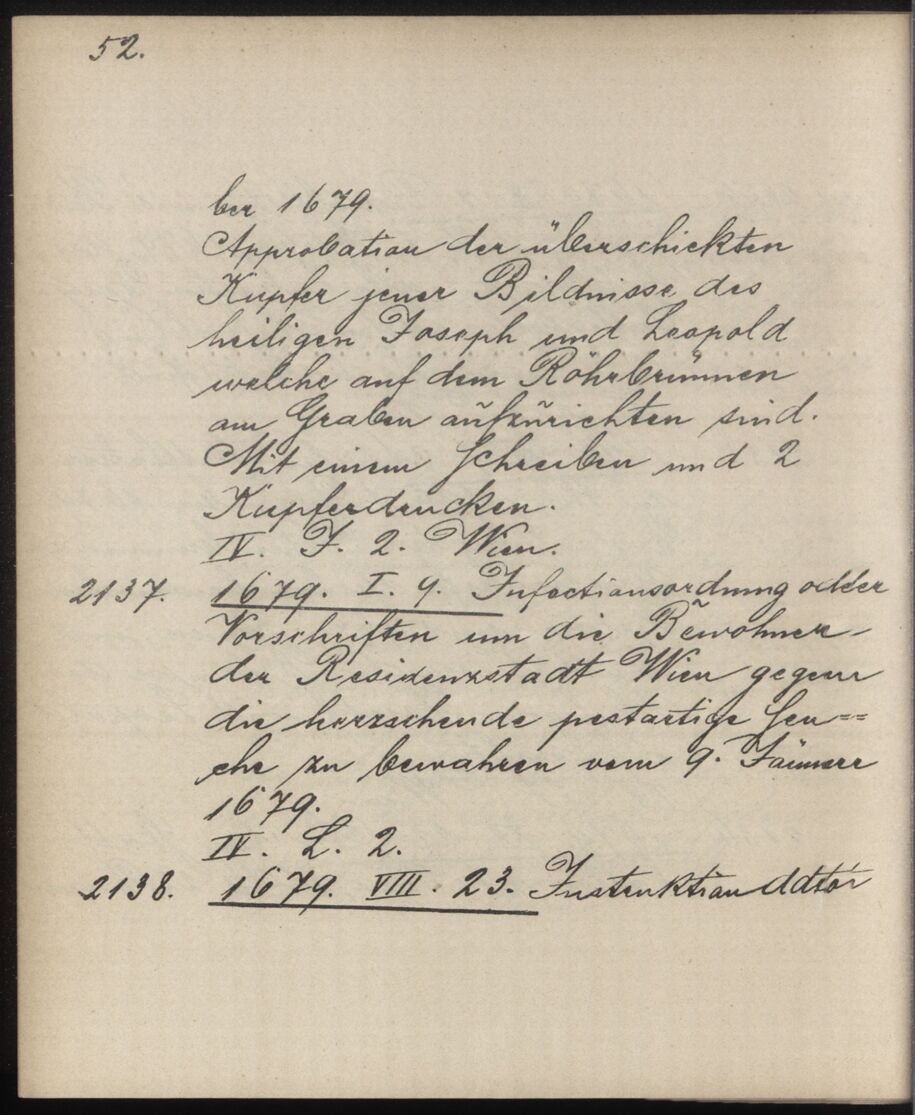 52.
ber 1679.
Approbation der überschickten
Kupfer jener Bildnisse des
heiligen Joseph und Leopold
welche auf dem Röhrbrunnen
am Graben aufzurichten sind.
Mit einem Schreiben und 2
Kupferdrucken.
IV. F. 2. Wien.
2137. 1679. I. 9. Infectionsordnung oder
Vorschriften um die Bewohner
der Residenzstadt Wien gegen
die herrschende pestartige Seu=
che zu bewahren vom 9. Jänner
1679.
IV. L. 2.
2138. 1679. VIII. 23. Instruktion